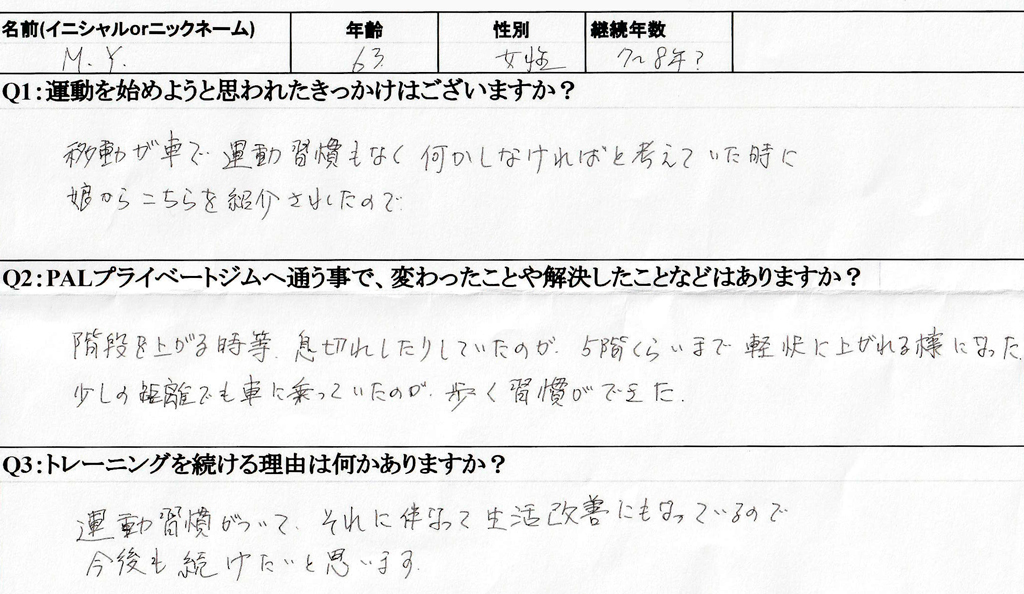 名前(イニシャルorニックネーム) 年齢 性別 継続年数
M.Y. 63 女性 7〜8年?
Q1:運動を始めようと思われたきっかけはございますか?
移動が車で運動習慣もなく何かしなければと考えていた時に
娘からこちらを紹介されたので
Q2:PALプライベートジムへ通う事で、変わったことや解決したことなどはありますか?
階段を上がる時等、息切れしたりしていたのが、5階くらいまで軽快に上がれる様になった
少しの距離でも車に乗っていたのが、歩く習慣ができた.
Q3:トレーニングを続ける理由は何かありますか?
運動習慣がついて、それに伴なって生活改善にもなっているので
今後も続けたいと思います.